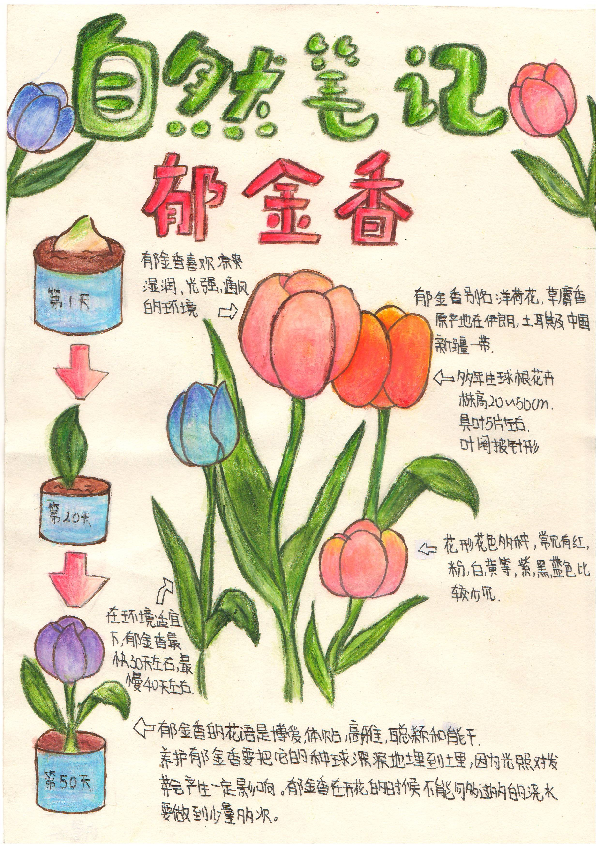 自然笔记
郁金香
郁金香喜欢凉爽
湿润，光强，通风
的环境
郁金香别称：洋荷花，草麝香
原产地在伊朗，土耳其及中国
新疆一带.
多年生球根花卉
株高20～50cm.
具叶5片左右
叶阔披针形
花形花色多种，常见有红，
粉，白黄等，紫，黑蓝色比
较少见.
第1天
第20天
第50天
在环境适宜
下，郁金香最
快30天左右，最
慢40天左右.
郁金香的花语是博爱，体贴，高雅，聪颖和能干.
养护郁金香要把它的种球深深地埋到土里，因为光照对发
芽会产生一定影响。郁金香在开花的时候不能间多过的的浇水
要做到少量多次。